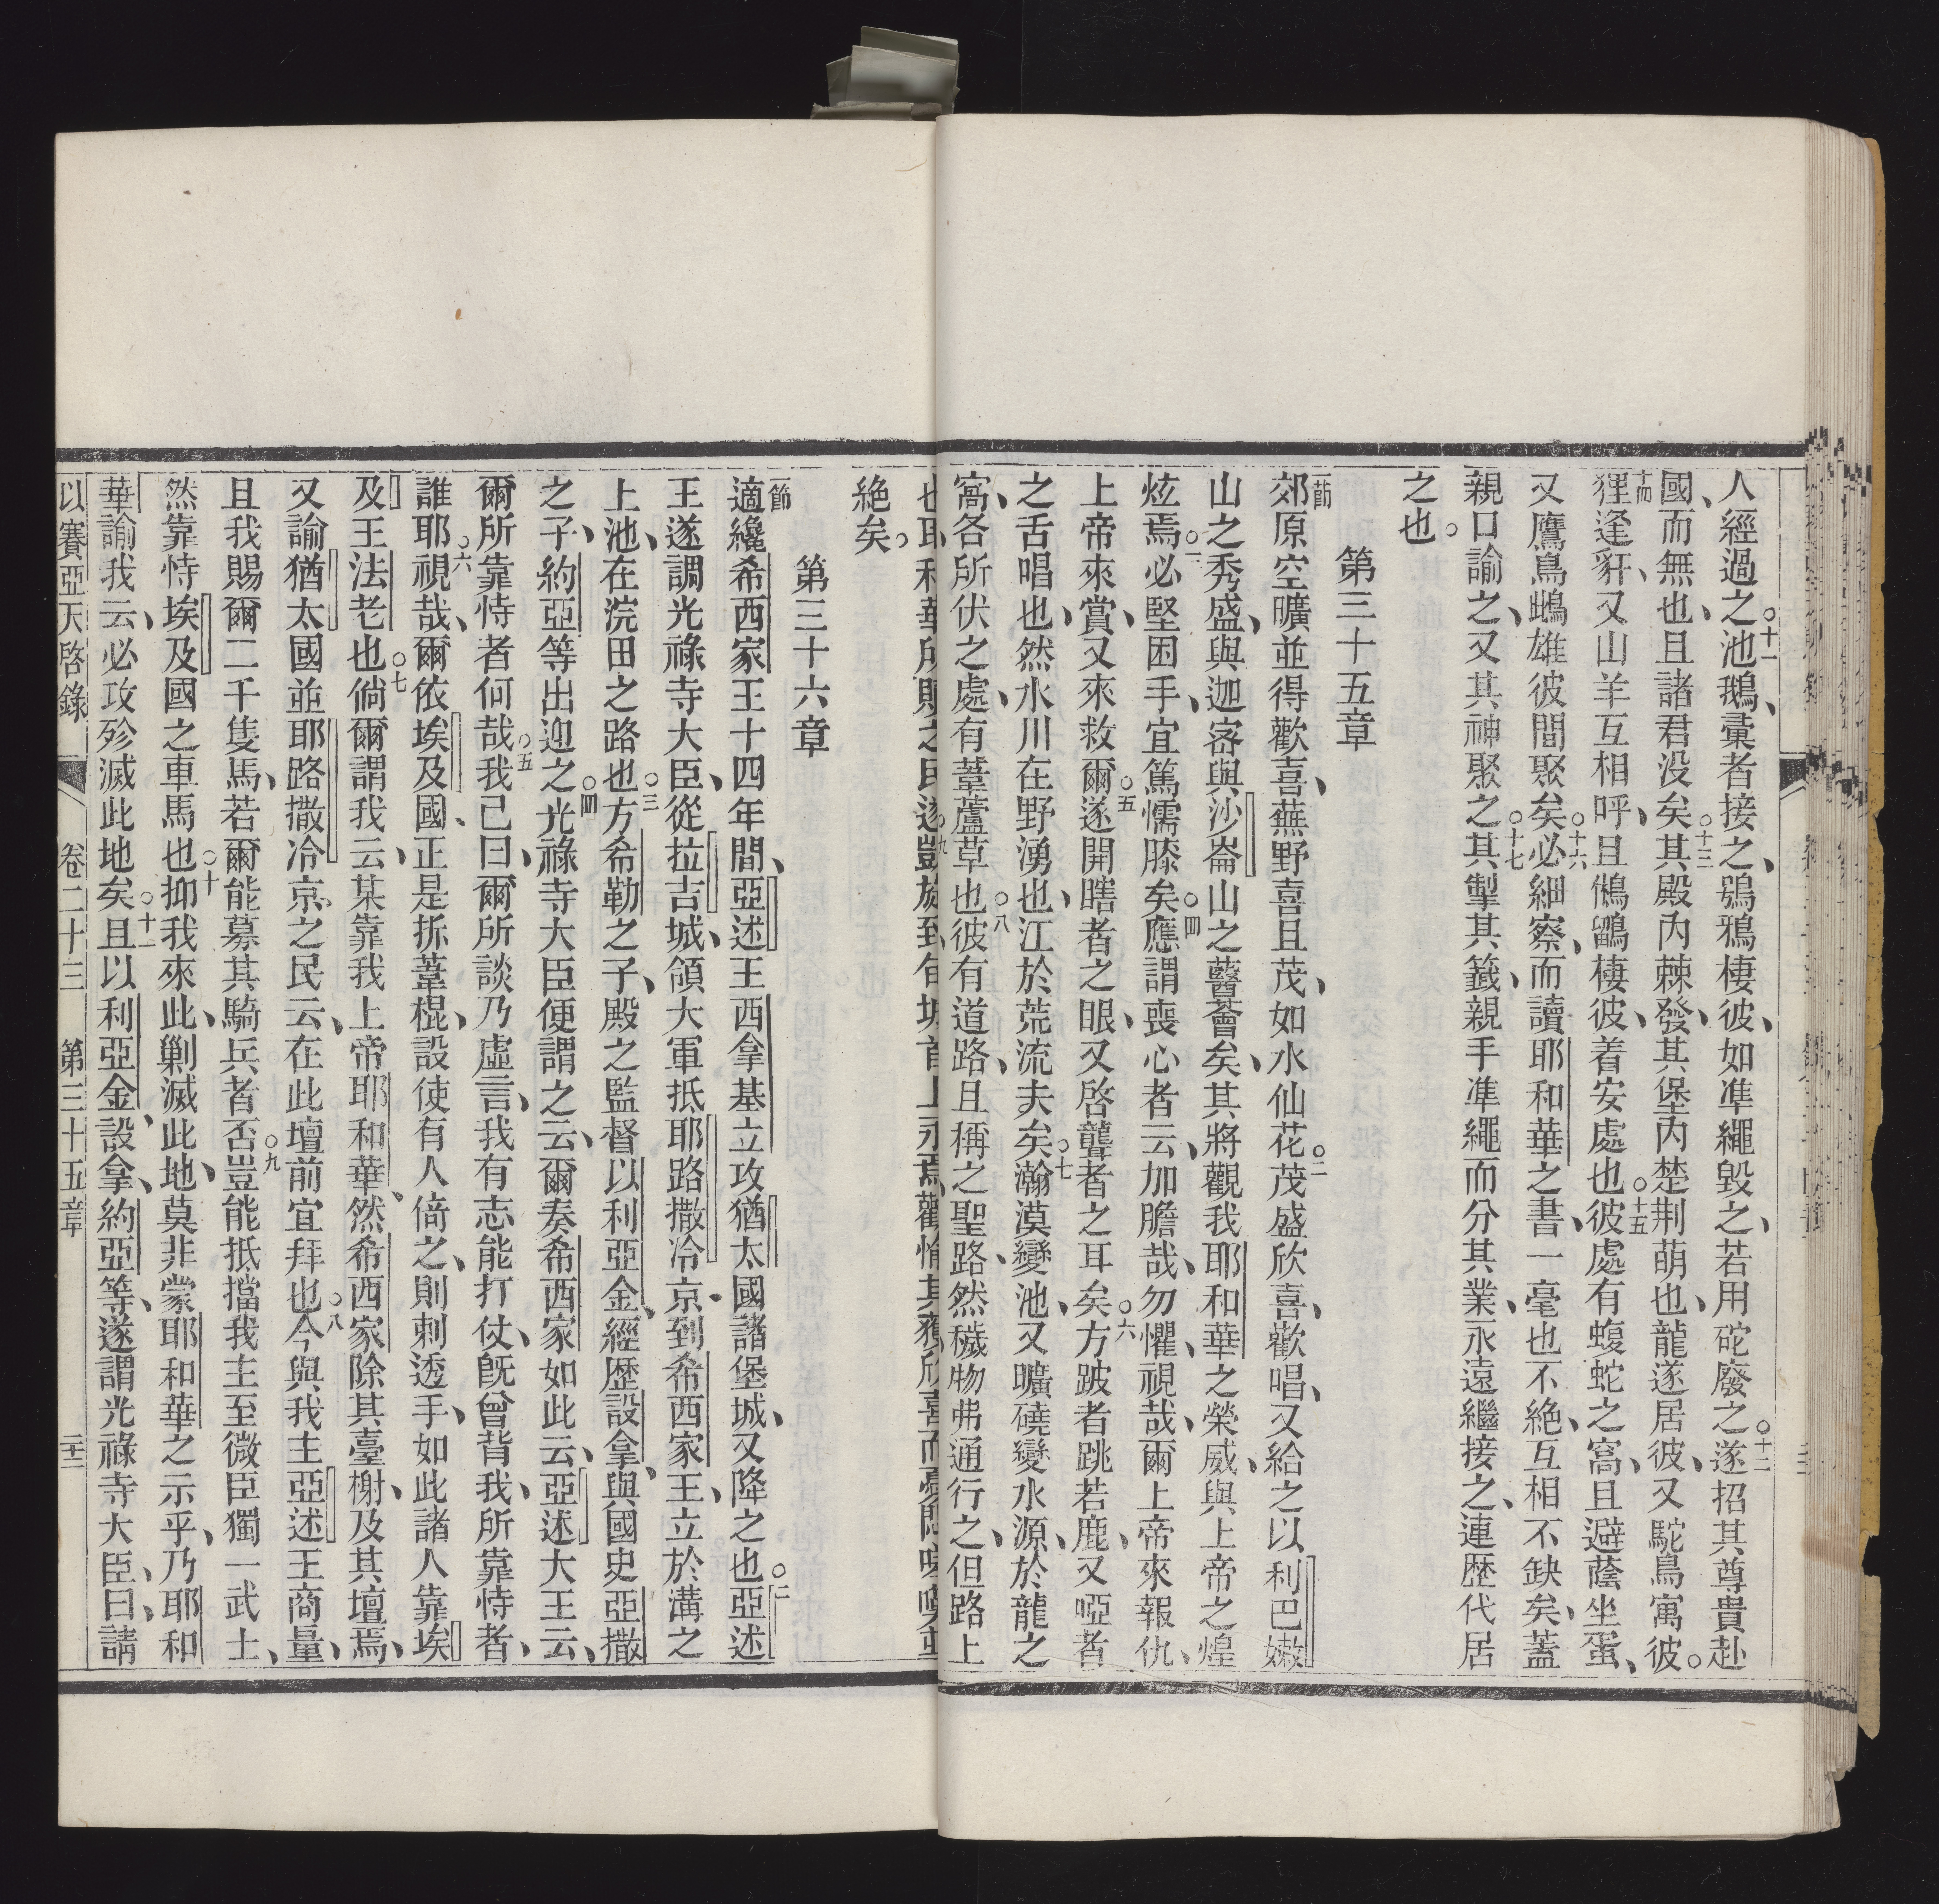 人經過之○十一池鵝、彙者接之、鴞鴉棲彼、如凖繩毀之、若用砣廢之○十二遂招其尊貴赴
國、而無也、且諸君没矣○十三其殿内棘發、其堡内楚荆萌也、龍遂居彼、又駝鳥寓彼。
十四狸逢豻、又山羊互相呼、且鵂鶹棲彼、着安處也○十五彼處有蝮蛇之窩、且避蔭坐蛋、
又鷹鳥鴟雄彼間聚矣○十六必細察、而讀耶和華之書、一毫也不絶、互相不缺矣、蓋
親口諭之、又其神聚之○十七其掣其籤、親手凖繩而分其業、永遠繼接之、連歷代居
之也。
第三十五章
一節郊原空曠並得歡喜、蕪野喜且茂、如水仙花○二茂盛欣喜、歡唱、又給之以利巴嫩
山之秀盛、與迦密與沙崙山之蘙薈矣、其將觀我耶和華之榮威、與上帝之煌
炫焉○三必堅困手、宜篤懦膝矣○四應謂喪心者云、加膽哉、勿懼、視哉、爾上帝來報仇、
上帝來賞、又來救爾○五遂開瞎者之眼、又啓聾者之耳矣○六方跛者跳若鹿、又啞者
之舌唱也、然水川在野湧也、江於荒流夫矣○七瀚漠變池、又曠磽變水源、於龍之
窩、各所伏之處、有葦蘆草也○八彼有道路、且稱之聖路、然穢物弗通行之、但路上
絶矣。
第三十六章
一節適纔希西家王十四年間、亞述王西拿基立攻猶太國諸堡城、又降之也○二亞述
王遂調光祿寺大臣、從拉吉城、領大軍抵耶路撒冷京、到希西家王、立於溝之
上、池、在浣田之路也○三方希勒之子、殿之監督以利亞金、經歷設拿、與國史亞撒
之子、約亞等出迎之○四光祿寺大臣便謂之云、爾奏希西家如此云、亞述大王云、
爾所靠恃者何哉○五我已曰、爾所談乃虛言、我有志能打仗、旣曾背我、所靠恃者、
誰耶○六視哉、爾依埃及國、正是拆葦棍、設使有人倚之、則刺透手、如此諸人靠埃
及王法老也○七倘爾謂我云、某靠我上帝耶和華、然希西家除其臺榭、及其壇焉、
又諭猶太國並耶路撒冷京之民云、在此壇前宜拜也○八今與我主亞述王商量、
且我賜爾二千隻馬、若爾能募其騎兵者否○九豈能抵擋我主至微臣獨一武士、
然靠恃埃及國之車馬也○十抑我來此、剿滅此地、莫非蒙耶和華之示乎、乃耶和
華諭我云、必攻殄滅此地矣○十一且以利亞金、設拿、約亞等、遂謂光祿寺大臣、曰、請
以賽亞天啓錄 卷二十三 第三十五章